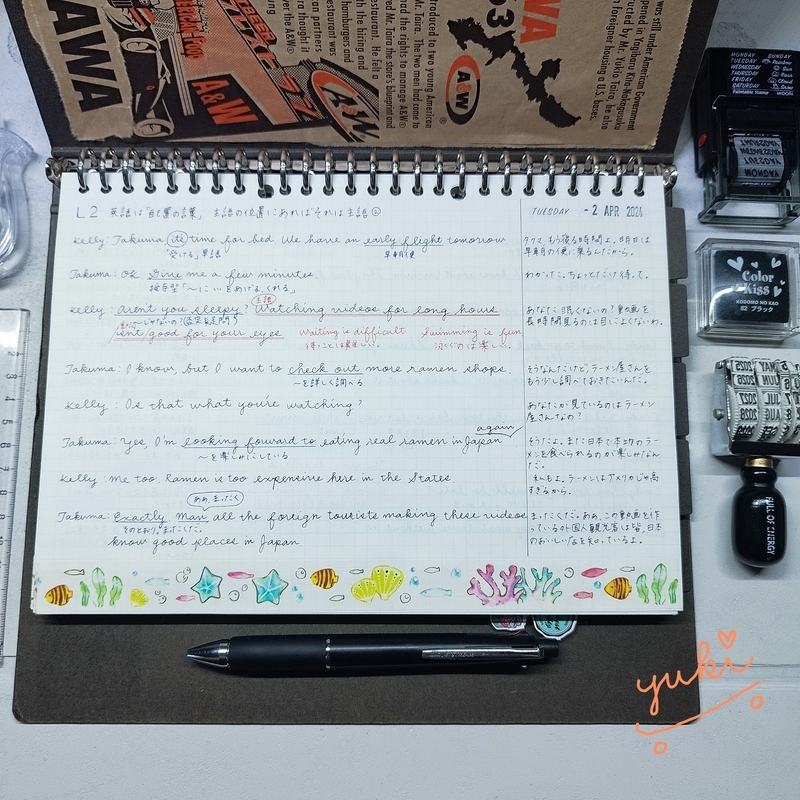 was still under American Government
opened in Yagibaru Kita-Nakagusuku
foreigner housing a U.S. bases.
troduced to two young American
Mr. Taira. The two men had come to
had the rights to manage A&W®
red Mr. Taira the store's blueprint and
restaurant. He felt a
th the hiring and
restaurant was
hamburgers and
an partners
ver the A&W®
AWA
A&W
A&W
A&W
WA
53
MONDAY
TUESDAY
WEDNESDAY
THURSDAY
FRIDAY
SATURDAY
SUNDAY
Rainbow
Sun
Rain
Cloud
Snow
MOON
L2 英語は「配置の言葉」 主語の位置にあればそれは主語②
TUESDAY - 2 APR 2024
Kelly: Takuma, it's time for bed. We have an early flight tomorrow.
「受ける」単語
早朝の便
タクマ、もう寝る時間よ。明日は
早朝の便に乗るんだから。
Takuma: OK. Give me a few minutes.
授与型「〜に…をあげる、くれる」
わかった。ちょっとだけ待って。
Kelly: Aren't you sleepy? Watching videos for long hours
主語
〜じゃないの？（否定疑問）
isn't good for your eyes.
Waiting is difficult
待つことは難しい。
Swimming is fun
泳ぐのは楽しい。
あなた眠くないの？動画を
長時間見るのは目によくないわ。
Takuma: I know, but I want to check out more ramen shops.
〜を詳しく調べる
そうなんだけど、ラーメン屋さんを
もう少し調べておきたいんだ。
Kelly: Is that what you're watching?
あなたが見ているのはラーメン
屋さんなの？
Takuma: Yes, I'm looking forward to eating real ramen in Japan
again
〜を楽しみにしている
そうだよ、また日本で本物のラー
メンを食べられるのが楽しみなん
だ。
Kelly: Me too. Ramen is too expensive here in the States.
私もよ。ラーメンはアメリカじゃ高
すぎるから。
ああ、まったく
Takuma: Exactly. Man, all the foreign tourists making these videos
そのとおり。まったくだ。
know good places in Japan.
まったくだ。ああ、この動画を作
っている外国人観光客は皆、日本
のおいしい店を知っているよ。
Color
Kiss
KODOMO NO KAO
82 ブラック
FULL OF ENERGY
yuki